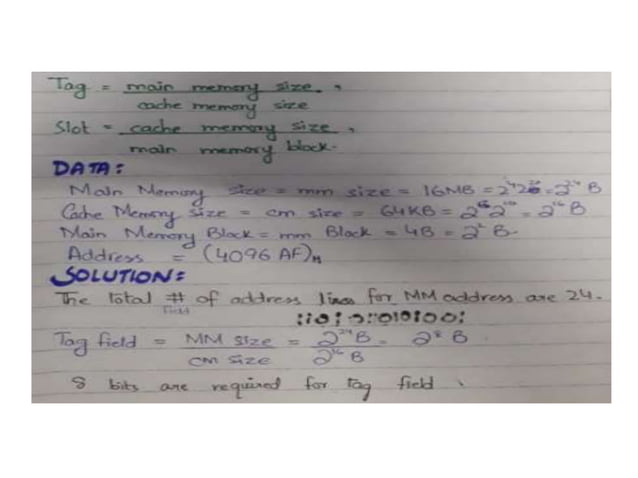 Tag = main memory size ,
cache memory size
Slot = cache memory size ,
main memory block.
DATA:
Main Memory size = mm size = 16MB = 2⁴2²⁰ = 2²⁴ B
Cache Memory size = cm size = 64KB = 2⁶2¹⁰ = 2¹⁶ B
Main Memory Block = mm Block = 4B = 2² B.
Address = (4096 AF)H
SOLUTION:
The total # of address lines for MM address are 24.
Field
Tag field = MM size = 2²⁴B = 2⁸ B
cm size 2¹⁶ B
8 bits are required for tag field .